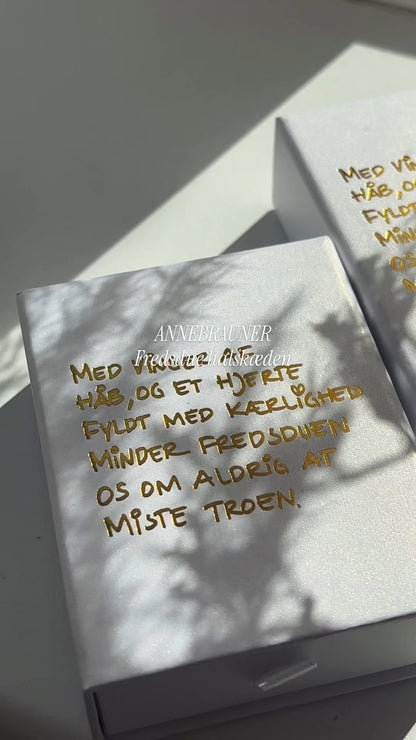 ANNEBRAUNER
Fredsdue halskæden
MED VINGER AF
HÅB, OG ET HJERTE
FYLDT MED KÆRLIGHED
MINDER FREDSDUEN
OS OM ALDRIG AT
MISTE TROEN.
MED
HÅB,
FYLDT